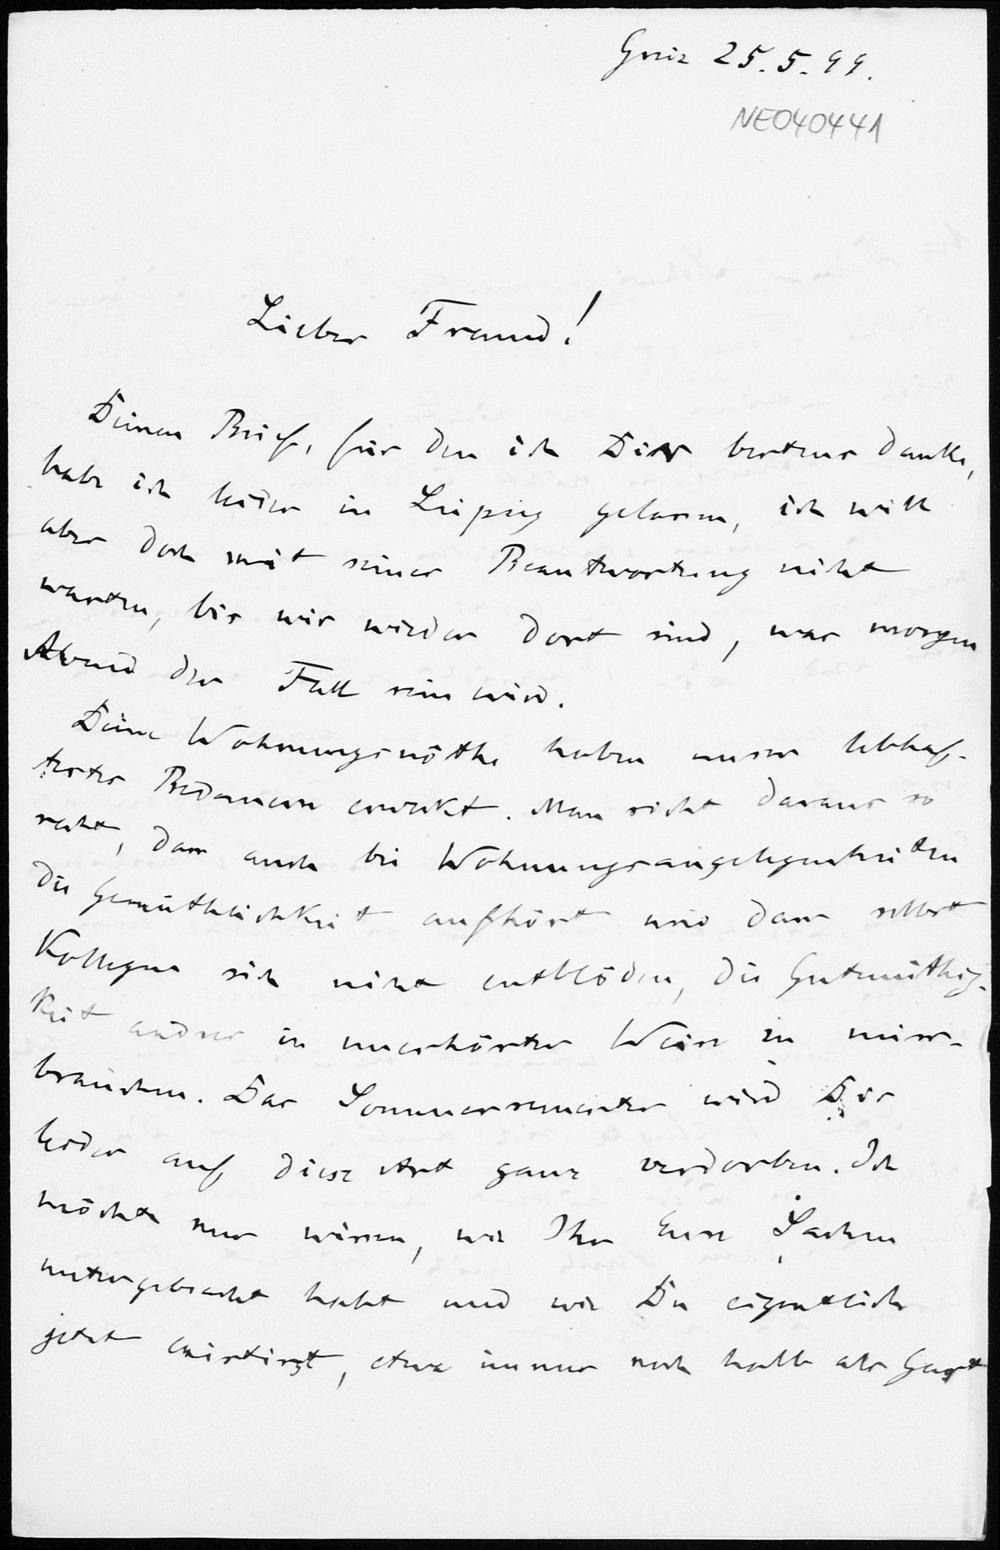 Greiz 25.5.99.
NE040441
Lieber Freund!
Deinen Brief, für den ich Dir bestens danke,
habe ich leider in Leipzig gelassen, ich will
aber doch mit seiner Beantwortung nicht
warten, bis wir wieder dort sind, was morgen
Abend der Fall sein wird.
Deine Wohnungsnöthe haben unser lebhaf-
testes Bedauern erweckt. Man sieht daraus so
recht, dass auch bei Wohnungsangelegenheiten
die Gemüthlichkeit aufhört und dass selbst
Kollegen sich nicht entblöden, die Gutmüthig-
keit andrer in unerhörter Weise zu miss-
brauchen. Das Sommersemester wird Dir
leider auf diese Art ganz verdorben. Ich
möchte nur wissen, wie Ihr Eure Sachen
untergebracht habt und wie Du eigentlich
jetzt existirst, etwa immer noch halb als Gast